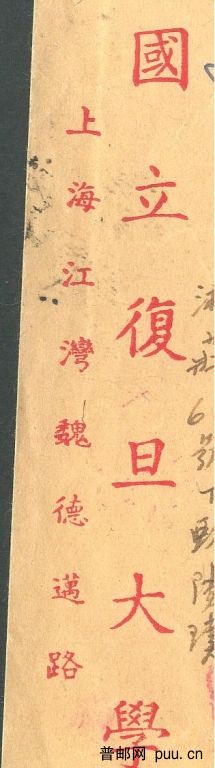 國立復旦大學
上海江灣魏德邁路
普邮网 puu.cn